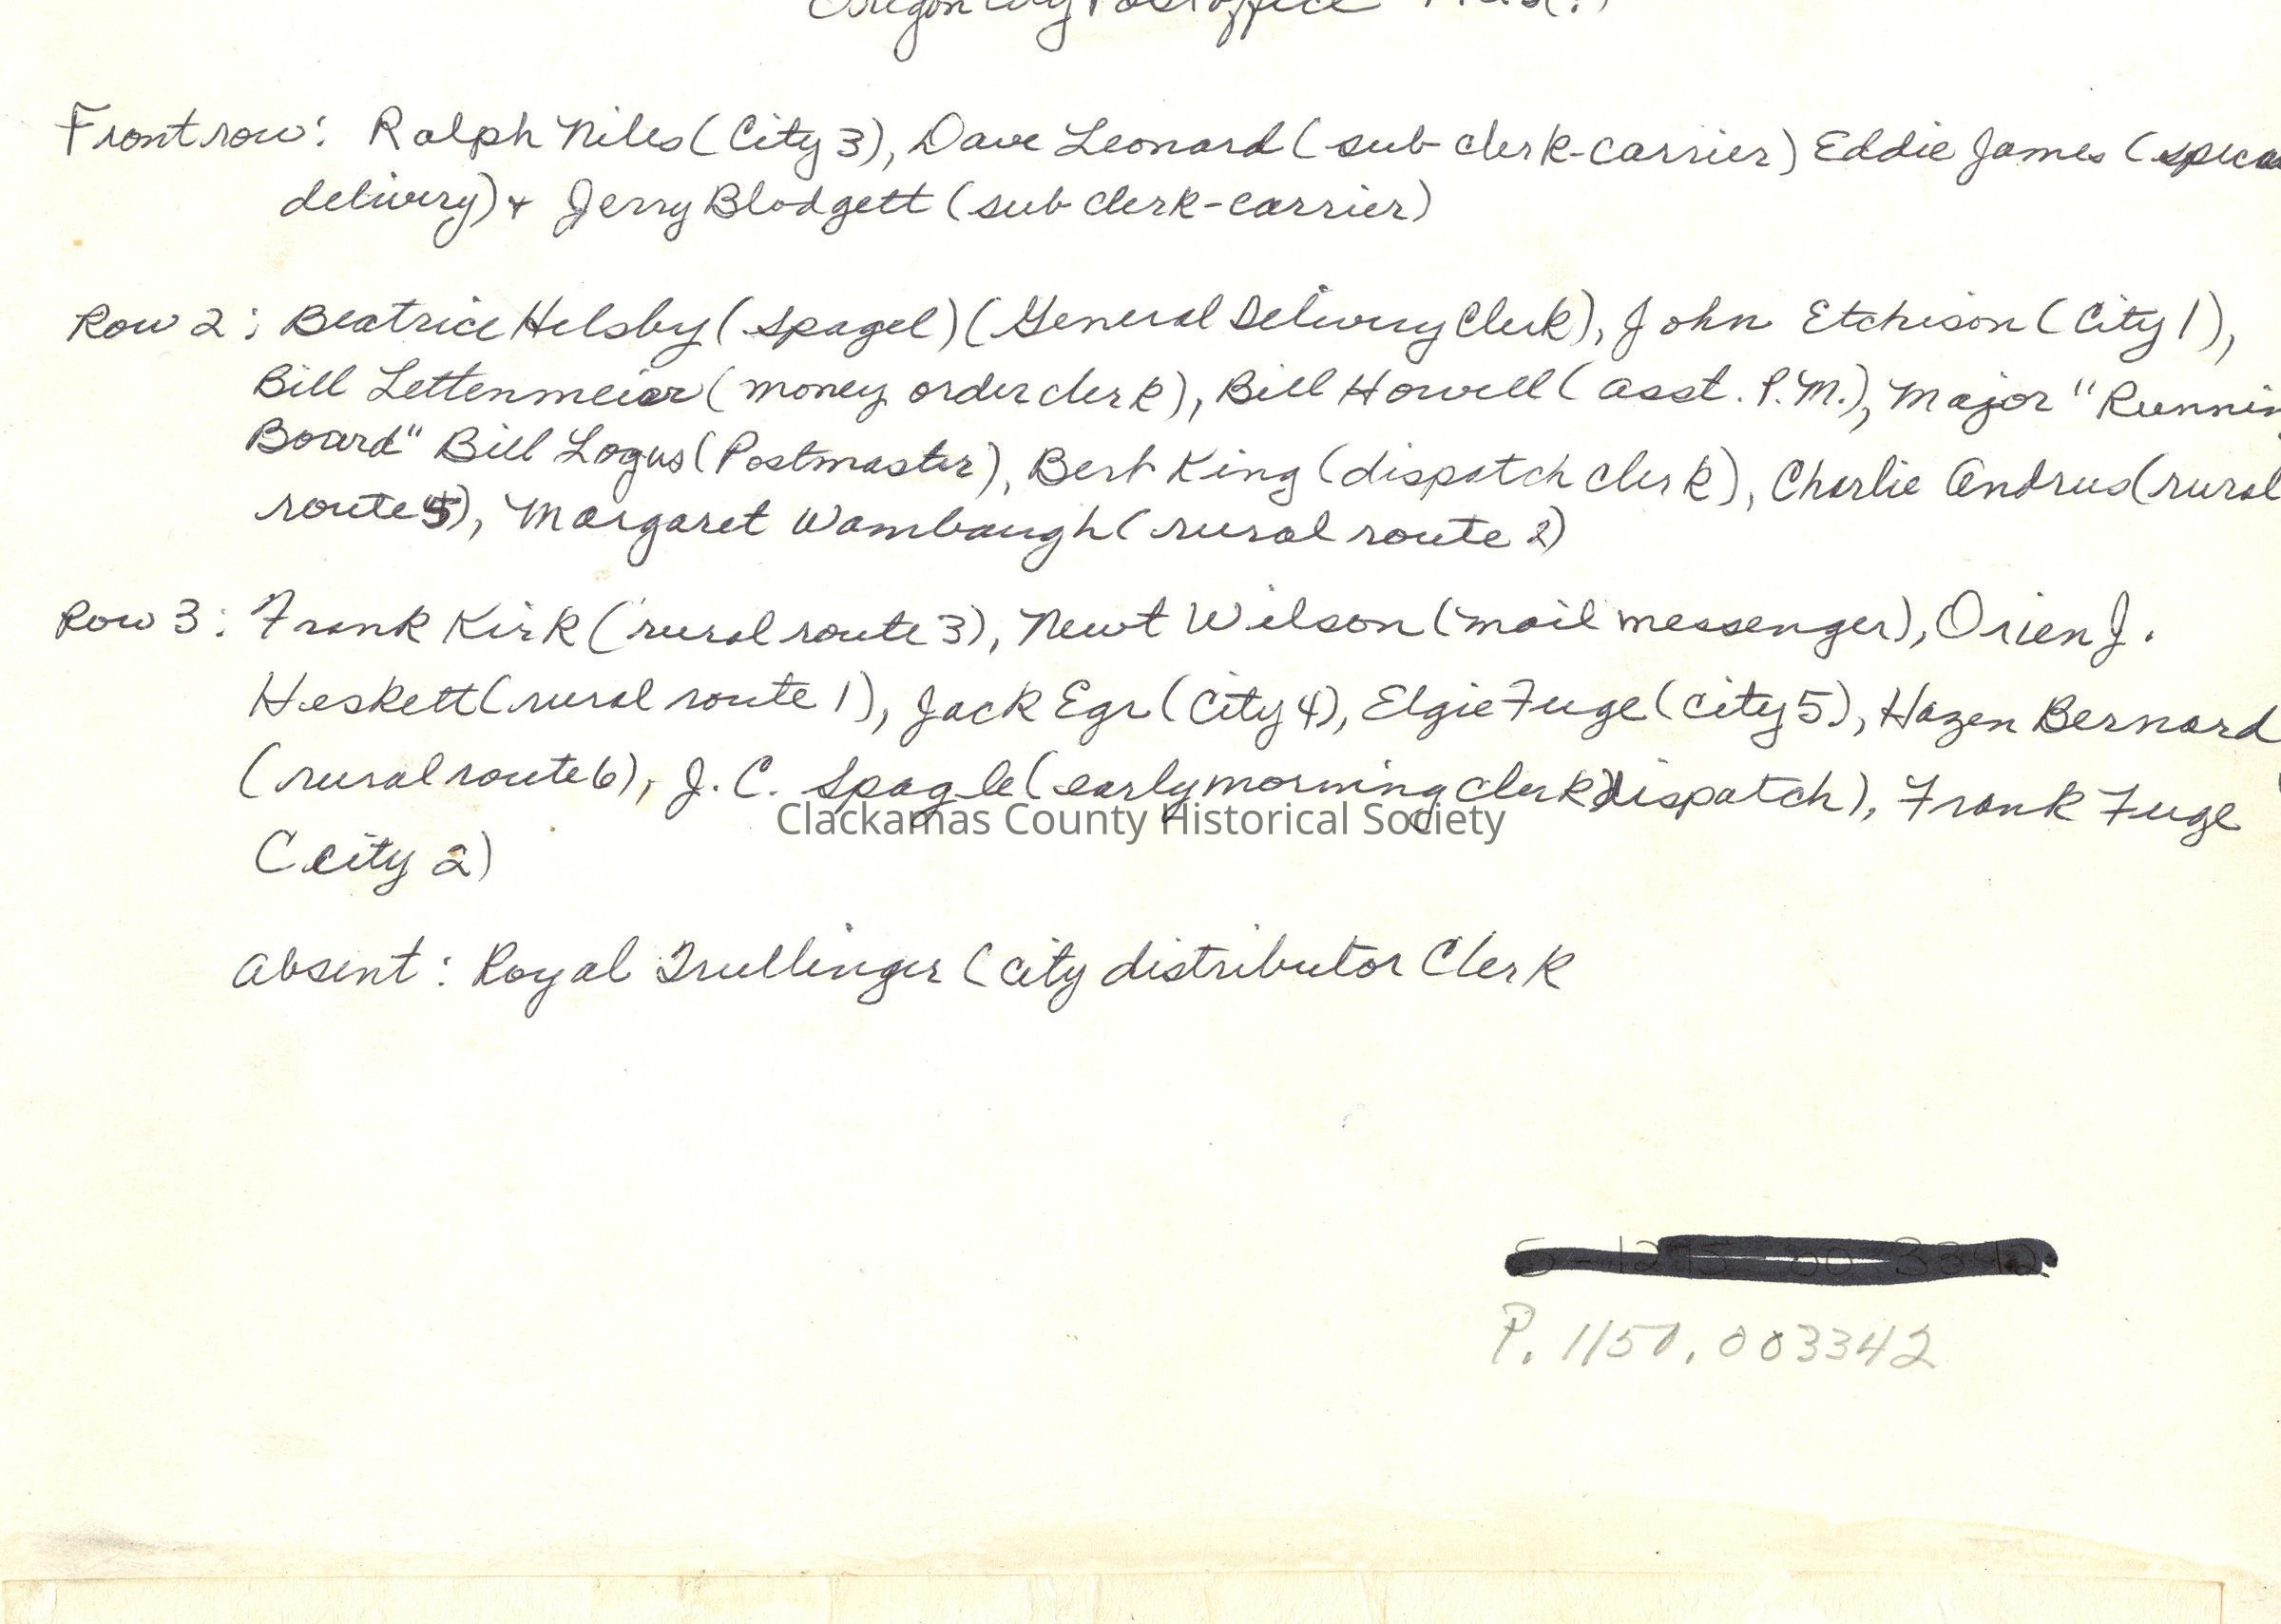 Oregon City Post office
Front row: Ralph Niles (City 3), Dave Leonard (sub clerk-carrier) Eddie James (specia
delivery) + Jerry Blodgett (sub clerk-carrier)
Row 2: Beatrice Helsby (Spagel) (General Delivery Clerk), John Etchison (City 1),
Bill Lettenmeier (money order clerk), Bill Howell (asst. P.M.), Major "Runnin
Board" Bill Logus (Postmaster), Bert King (dispatch clerk), Charlie Andrus (rural
route 5), Margaret Wambaugh (rural route 2)
Row 3: Frank Kirk (rural route 3), Newt Wilson (mail messenger), Orien J.
Heskett (rural route 1), Jack Egr (City 4), Elgie Fuge (city 5), Hazen Bernard
(rural route 6), J. C. Spagle (early morning clerk dispatch), Frank Fuge
(city 2)
Clackamas County Historical Society
absent: Royal Trullinger (city distributor Clerk
P. 1150.003342